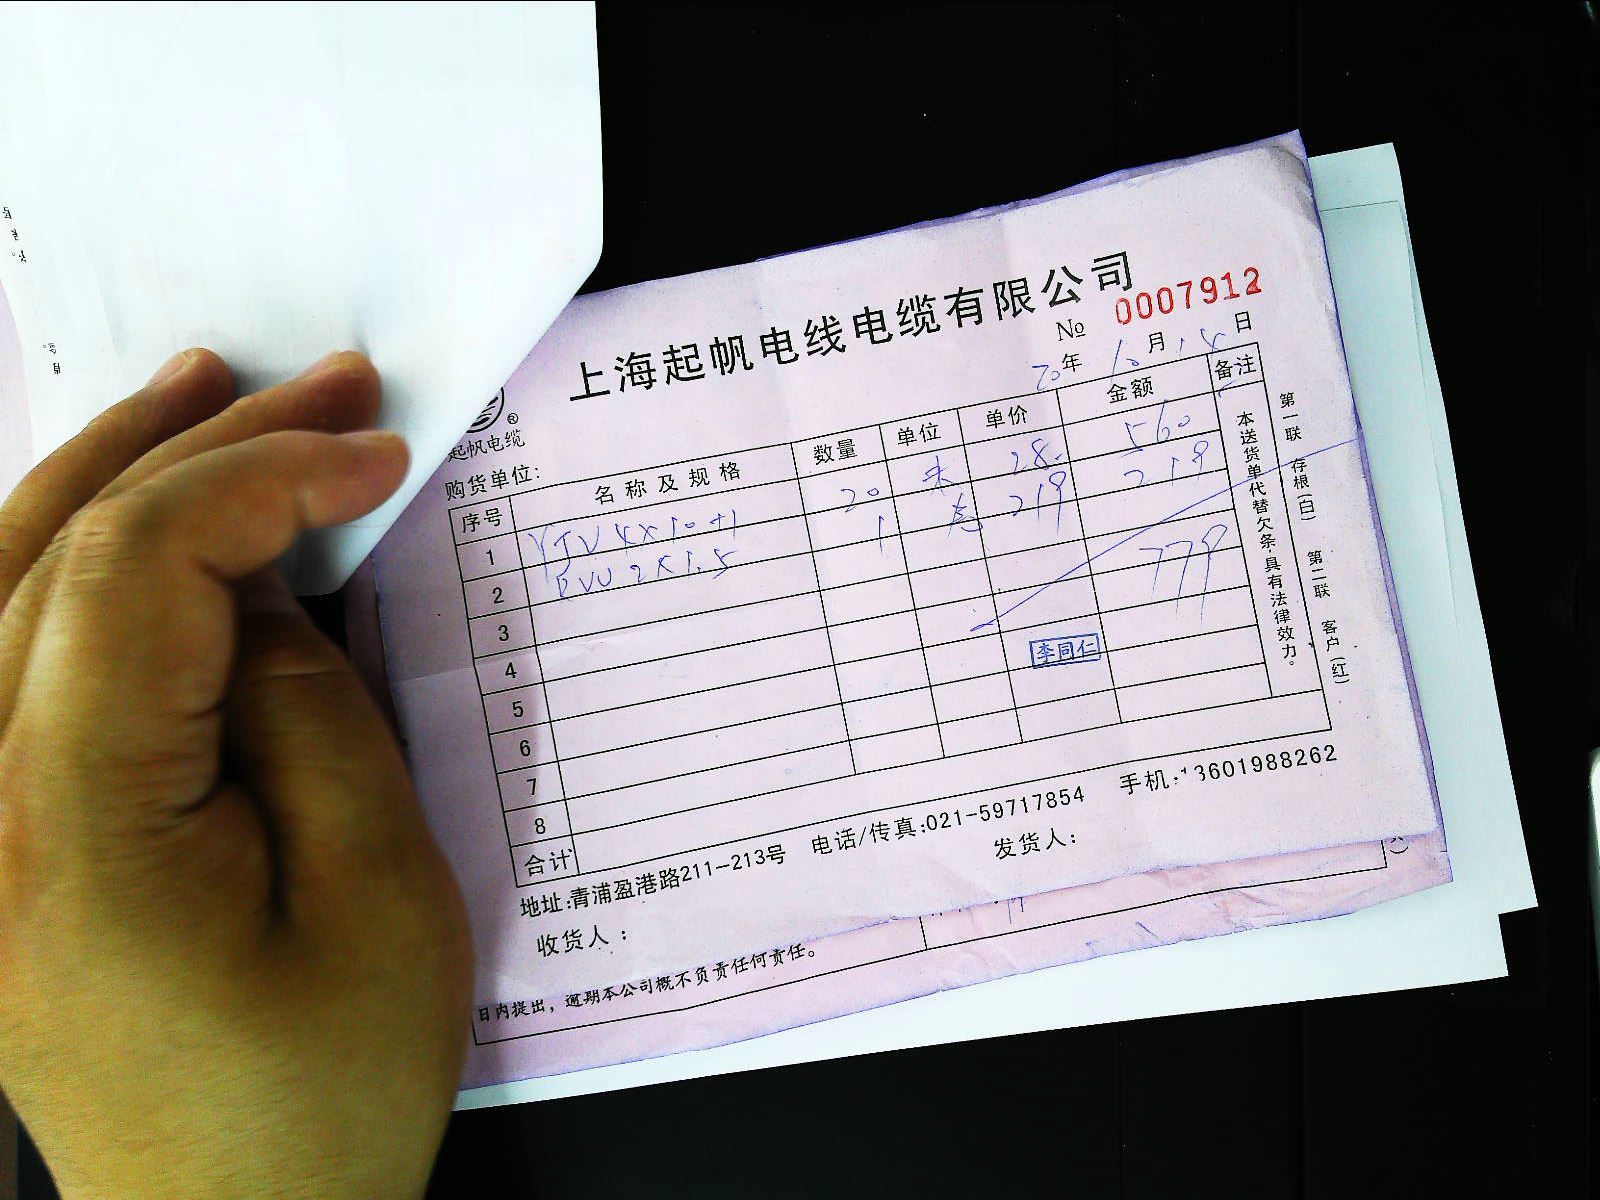 上海起帆电线电缆有限公司
® 起帆电缆
No 0007912
20年 10月 14日
购货单位:
序号 名称及规格 数量 单位 单价 金额 备注
1 YJV 4×10+1 20 米 28. 560
2 RVV 2×1.5 1 卷 219 219
3
4 779
5
6 李同仁
7
8
合计
本送货单代替欠条,具有法律效力。
第一联 存根(白) 第二联 客户(红)
地址:青浦盈港路211-213号 电话/传真:021-59717854 手机:13601988262
收货人: 发货人:
日内提出,逾期本公司概不负责任何责任。